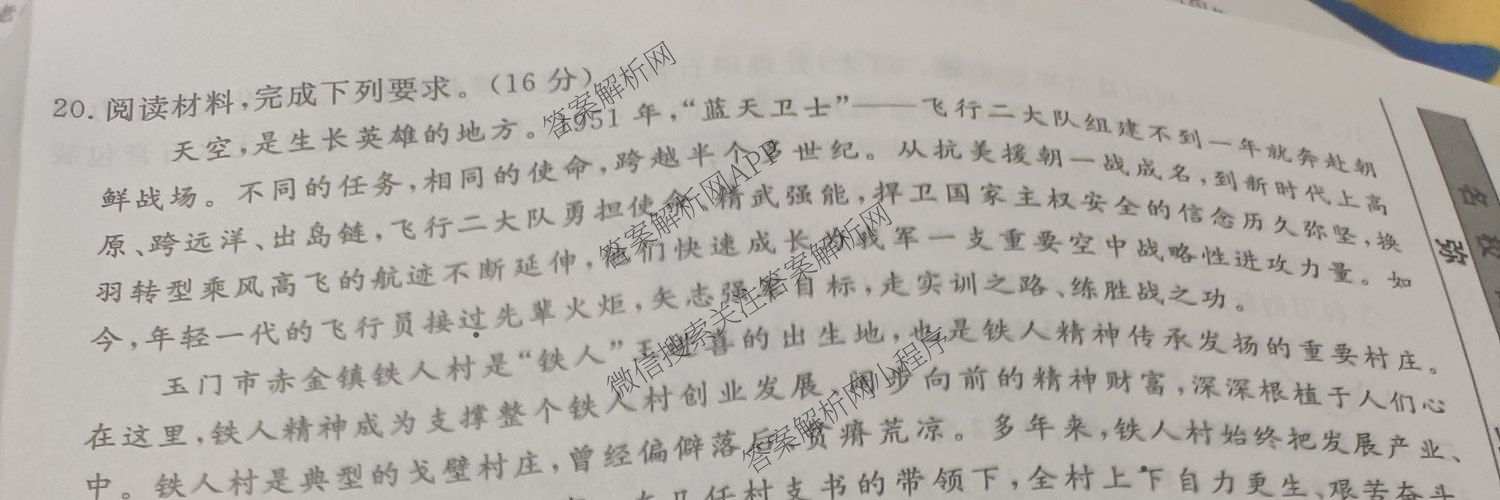 20. 阅读材料,完成下列要求。(16 分)
天空,是生长英雄的地方。1951 年,“蓝天卫士”——飞行二大队组建不到一年就奔赴朝
鲜战场。不同的任务,相同的使命,跨越半个多世纪。从抗美援朝一战成名,到新时代上高
原、跨远洋、出岛链,飞行二大队勇担使命、精武强能,捍卫国家主权安全的信念历久弥坚,换
羽转型乘风高飞的航迹不断延伸,他们快速成长为我军一支重要空中战略性进攻力量。如
今,年轻一代的飞行员接过先辈火炬,矢志强军目标,走实训之路、练胜战之功。
玉门市赤金镇铁人村是“铁人”王进喜的出生地,也是铁人精神传承发扬的重要村庄。
在这里,铁人精神成为支撑整个铁人村创业发展、阔步向前的精神财富,深深根植于人们心
中。铁人村是典型的戈壁村庄,曾经偏僻落后、贫瘠荒凉。多年来,铁人村始终把发展产业、
在几任村支书的带领下,全村上下自力更生、艰苦奋斗
答案解析网
答案解析网APP
微信搜索关注答案解析网
答案解析网小程序